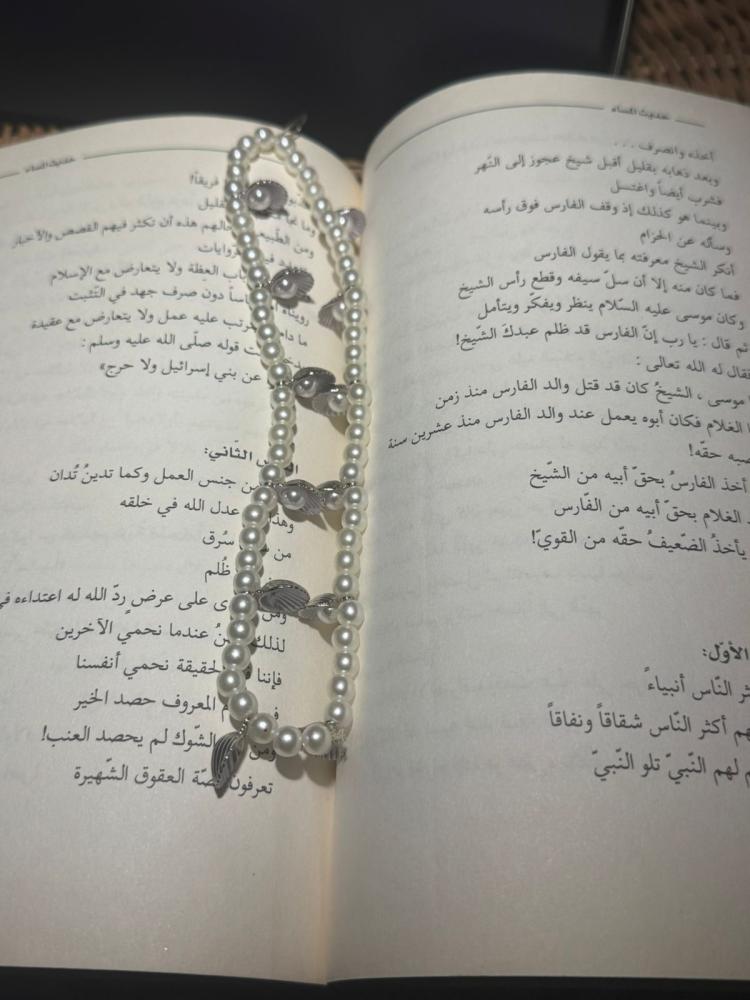 حديث المساء
أخذه وانصرف . . .
وبعد ذهابه بقليل أقبل شيخ عجوز إلى النّهر
فشرب أيضاً واغتسل
وبينما هو كذلك إذ وقف الفارس فوق رأسه
وسأله عن الحزام
أنكر الشيخ معرفته بما يقول الفارس
فما كان منه إلا أن سلّ سيفه وقطع رأس الشيخ
وكان موسى عليه السّلام ينظر ويفكّر ويتأمل
ثم قال : يا رب إنّ الفارس قد ظلم عبدكَ الشّيخ!
فقال له الله تعالى :
موسى ، الشيخُ كان قد قتل والد الفارس منذ زمن
الغلام فكان أبوه يعمل عند والد الفارس منذ عشرين سنة
حقه!
أخذ الفارسُ بحقّ أبيه من الشّيخ
الغلام بحقّ أبيه من الفّارس
يأخذُ الضّعيفُ حقّه من القويّ!
الأوّل:
النّاس أنبياءً
أكثر النّاس شقاقاً ونفاقاً
لهم النّبيّ تلو النّبيّ
حديث المساء
فريقاً!
وما
ومن حالهم هذه أن تكثر فيهم القصص والأخبار
العِظة ولا يتعارض مع الإسلام
رويناه دون صرف جهد في التّثبت
ما دام عليه عمل ولا يتعارض مع عقيدة
قوله صلّى الله عليه وسلم :
عن بني إسرائيل ولا حرج»
الثّاني:
من جنس العمل وكما تدينُ تُدان
وهذا عدل الله في خلقه
من سُرق
ظُلم
ومن على عرضٍ ردّ الله له اعتداءه
لذلك عندما نحمي الآخرين
فإننا نحمي أنفسنا
المعروف حصد الخير
ومن الشّوك لم يحصد العنب!
تعرفون العقوق الشّهيرة